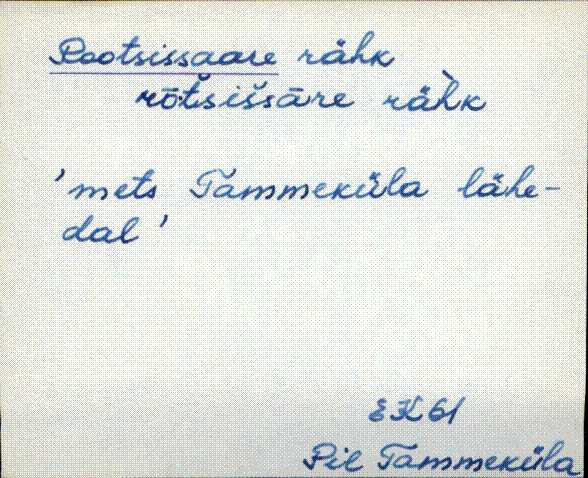 Rootsissaare rähk
rōt́sisśāre rähk
'mets Tammeküla lähe-
dal'
EK 61
Pil Tammeküla